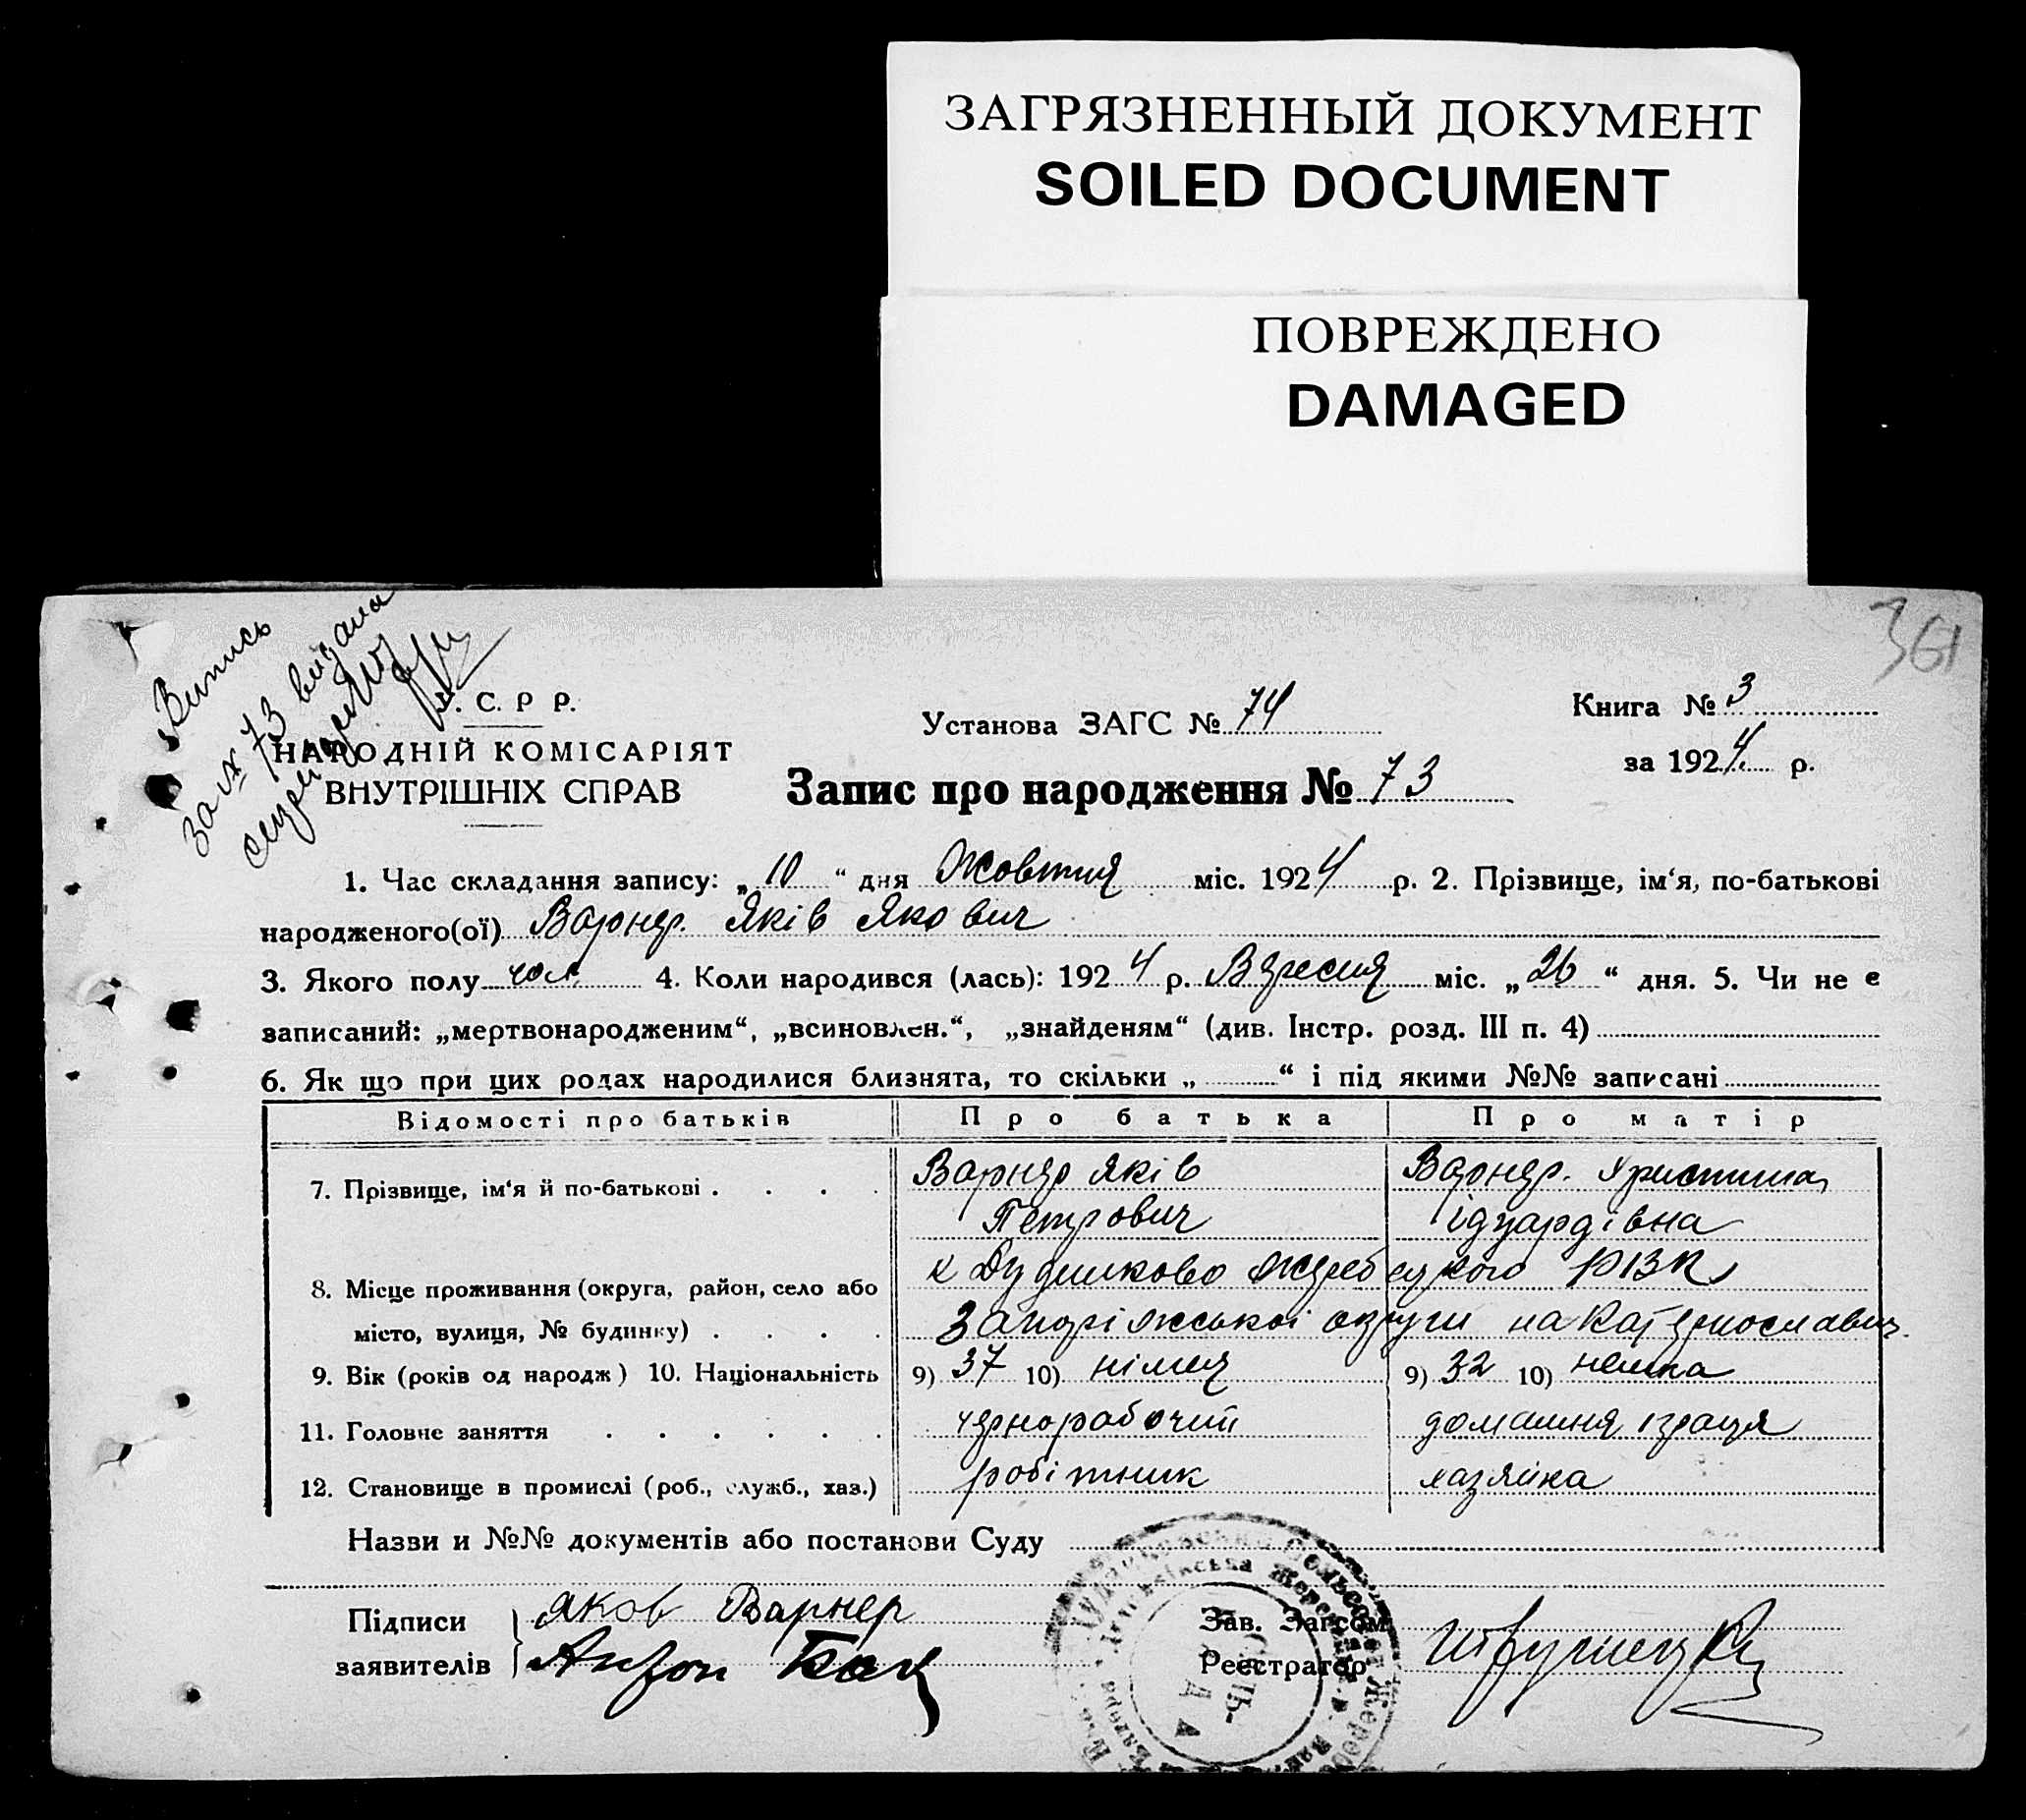 ЗАГРЯЗНЕННЫЙ ДОКУМЕНТ
SOILED DOCUMENT
ПОВРЕЖДЕНО
DAMAGED
361
Випись
за № 73 видана
С. Р Р.
НАРОДНІЙ КОМІСАРІЯТ
ВНУТРІШНІХ СПРАВ
Установа ЗАГС № 74
Запис про народження № 73
Книга № 3
за 1924 р.
1. Час складання запису: „10“ дня Жовтня міс. 1924 р. 2. Прізвище, ім‘я, по-батькові
народженого(ої) Варнер. Яків Якович
3. Якого полу чол. 4. Коли народився (лась): 1924 р. Вересня міс. „26“ дня. 5. Чи не є
записаний: „мертвонародженим“, „всиновлен.“, „знайденям“ (див. Інстр. розд. III п. 4)
6. Як що при цих родах народилися близнята, то скільки „ “ і під якими №№ записані
Відомості про батьків Про батька Про матір
7. Прізвище, ім‘я й по-батькові Варнер Яків Варнер. Христина
Петрович Ідуардівна
8. Місце проживання (округа, район, село або
місто, вулиця, № будинку)
к Дудниково Жеребецкого РВК
Запоріжської округи на Катеринославщ.
9. Вік (років од народж) 10. Національність 9) 37 10) німец 9) 32 10) немка
11. Головне заняття чернорабочий домашня праця
12. Становище в промислі (роб., служб., хаз.) робітник хазяйка
Назви и №№ документів або постанови Суду
Підписи
заявителів
Яков Варнер
Антон
Зав. Загсом
Реєстратор
СІЛЬ-
РАДА